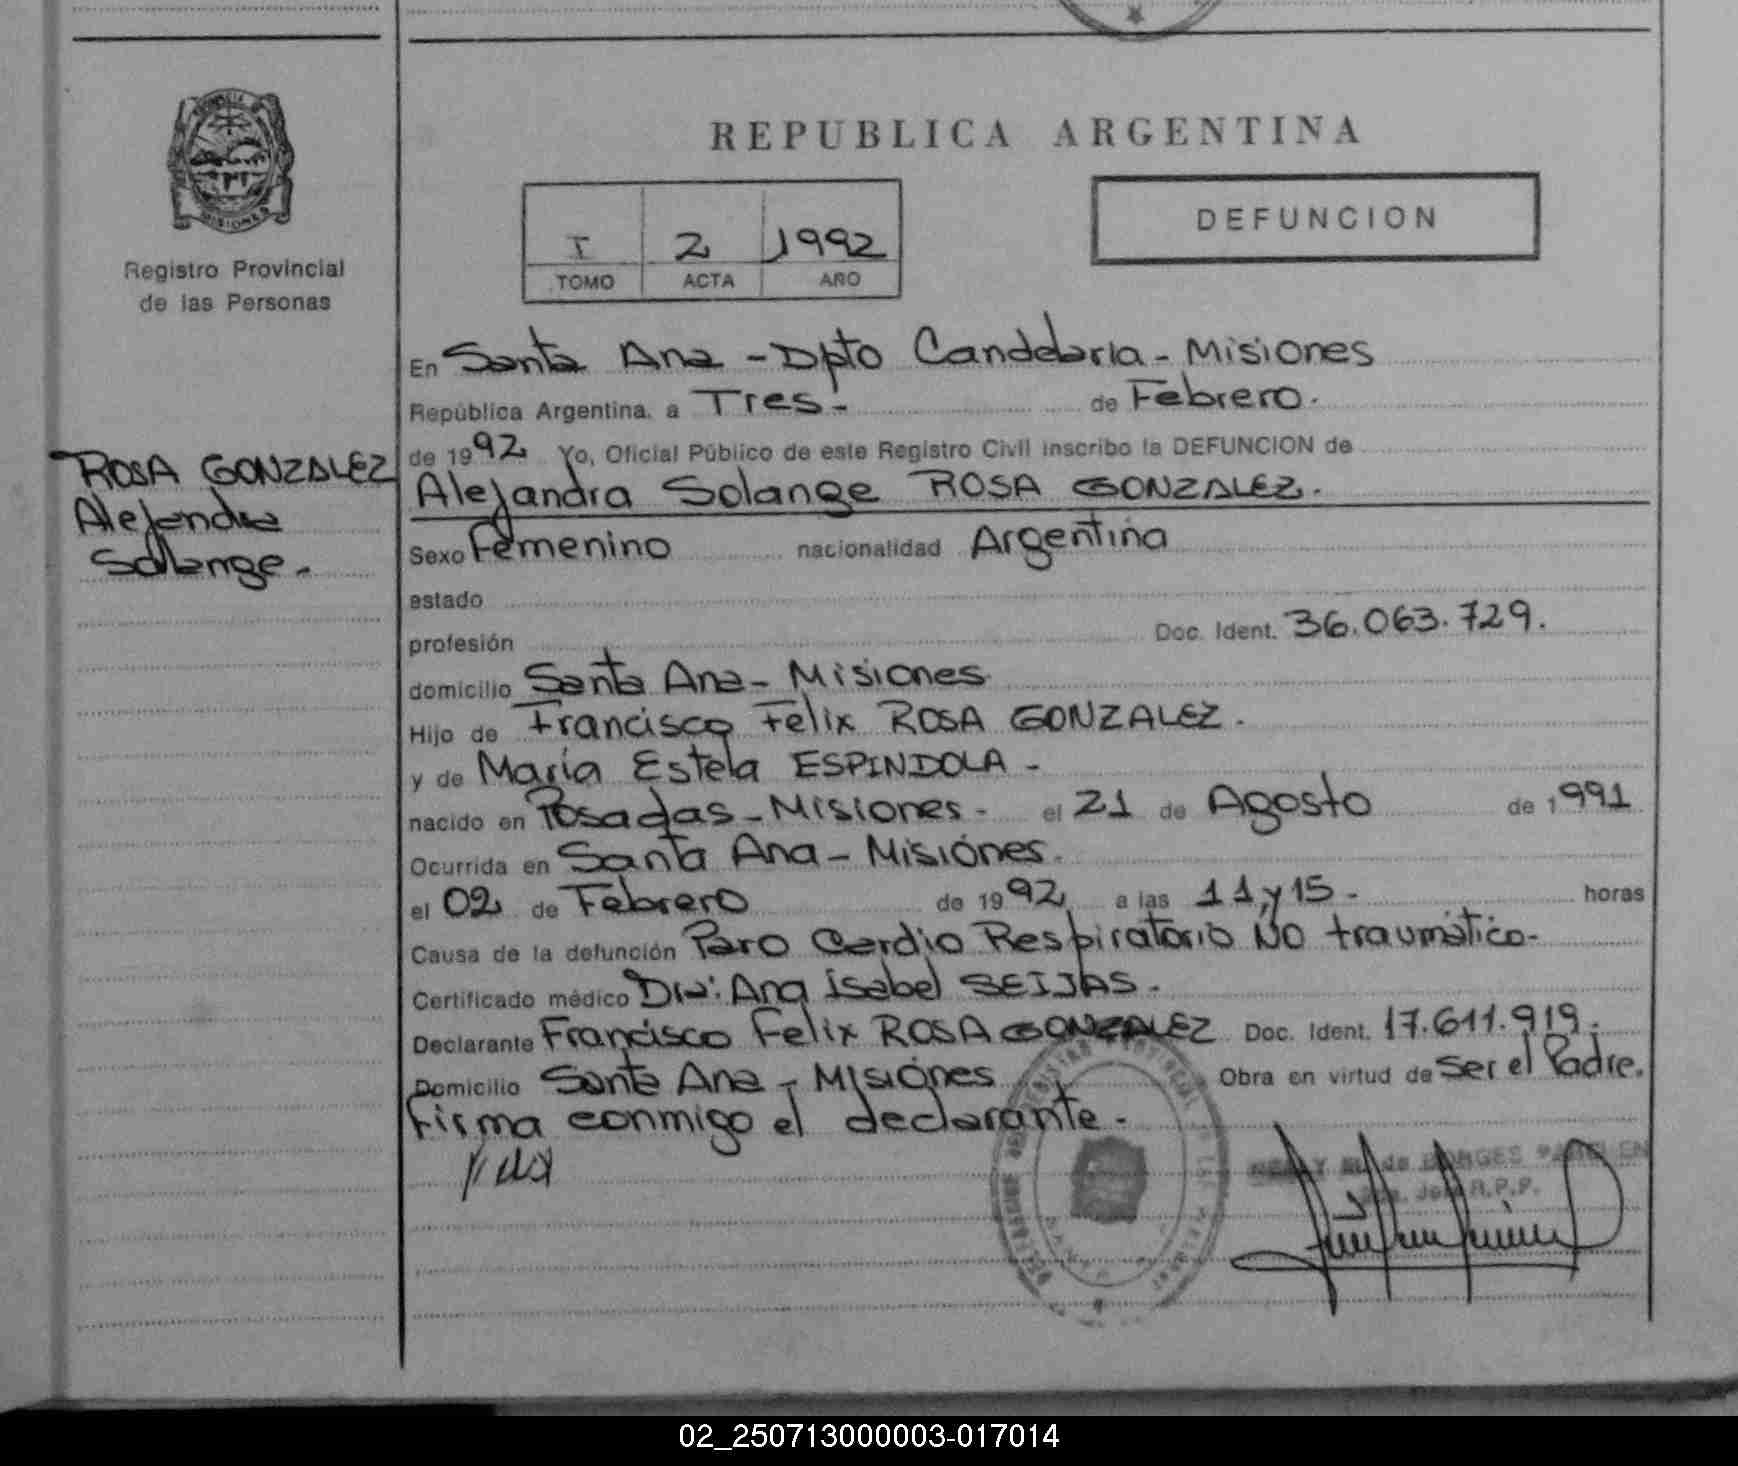 REPUBLICA ARGENTINA
PROVINCIA D
MISIONES
Registro Provincial
de las Personas
I 2 1992
TOMO ACTA AÑO
DEFUNCION
ROSA GONZALEZ
Alejandra
Solange.
En Santa Ana - Dpto Candelaria - Misiones
República Argentina, a Tres.- de Febrero.
de 1992 Yo, Oficial Público de este Registro Civil inscribo la DEFUNCION de
Alejandra Solange ROSA GONZALEZ.
Sexo Femenino nacionalidad Argentina
estado
profesión Doc. Ident. 36.063.729.
domicilio Santa Ana - Misiones
Hijo de Francisco Felix ROSA GONZALEZ.
y de María Estela ESPINDOLA -
nacido en Posadas - Misiones - el 21 de Agosto de 1991
Ocurrida en Santa Ana - Misiones.
el 02 de Febrero de 1992 a las 11 y 15 - horas
Causa de la defunción Paro Cardio Respiratorio No traumático -
Certificado médico Dra: Ana Isabel SEIJAS.
Declarante Francisco Felix ROSA GONZALEZ Doc. Ident. 17.611.919.
Domicilio Santa Ana - Misiones Obra en virtud de Ser el Padre.
Firma conmigo el declarante -
de BORGES
Jefe R.P.P.
02_250713000003-017014